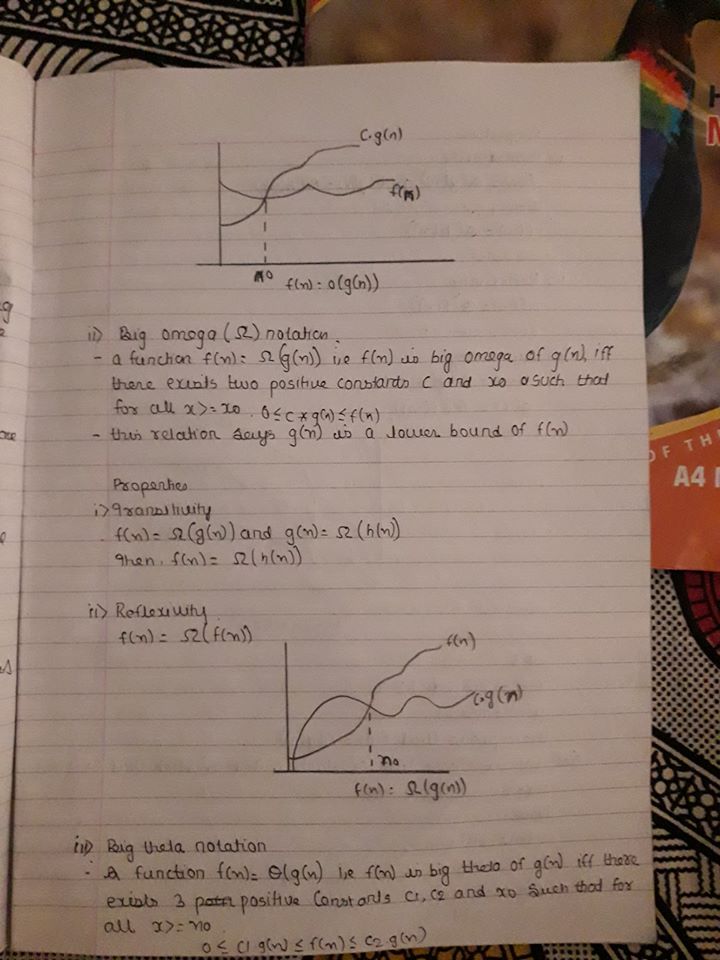 C.g(n)
f(n)
n0
f(n) = O(g(n))
ii) Big omega (Ω) notation.
- a function f(n) = Ω(g(n)) i.e f(n) is big omega of g(n), iff
there exists two positive constants c and x0 such that
for all x>=x0. 0 ≤ c * g(n) ≤ f(n)
- this relation says g(n) is a lower bound of f(n)
Properties
i) Transitivity
f(n) = Ω(g(n)) and g(n) = Ω(h(n))
Then. f(n) = Ω(h(n))
ii) Reflexivity
f(n) = Ω(f(n))
f(n)
c.g(n)
n0
f(n) = Ω(g(n))
iii) Big theta notation
- A function f(n) = Θ(g(n) i.e f(n) is big theta of g(n) iff there
exists 3 positive Constants c1, c2 and x0 such that for
all x>=n0.
0 ≤ c1.g(n) ≤ f(n) ≤ c2.g(n)
OF TH
A4